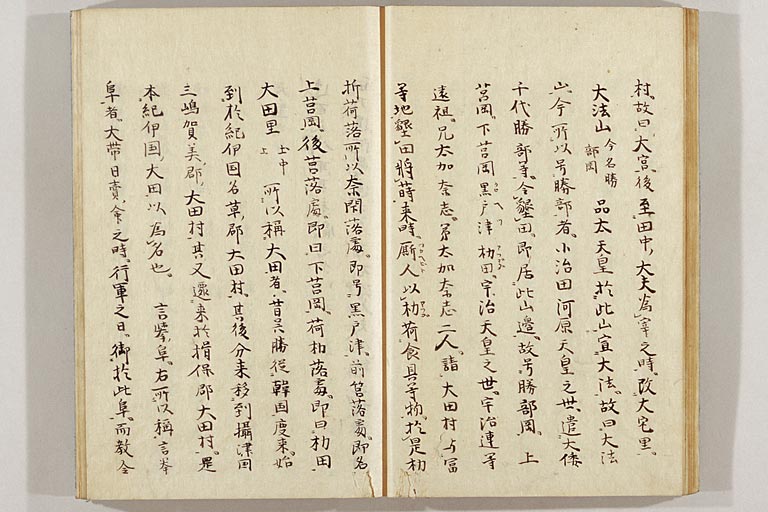 村。故曰大宮。後至田中大夫為宰之時。改大宅里。
大法山 今名勝部岡 品太天皇於此山宣大法。故曰大法
山。今所以号勝部者。小治田河原天皇之世。遣大倭
千代勝部等。令墾田。即居此山邊。故号勝部岡。上
筥岡。下筥岡。黒戸津。朸田。宇治天皇之世。宇治連等
遠祖。兄太加奈志。弟太加奈志二人。請大田村与冨
等地。墾田将蒔来時。厮人以朸荷食具等物。於是朸
折荷落。所以奈閇落處。即号黒戸津。前筥落處。即名
上筥岡。後筥落處。即曰下筥岡。荷朸落處。即曰朸田
大田里 土中上 所以称大田者。昔呉勝従韓国度来。始
到於紀伊国名草郡大田村。其後分来移到攝津国
三嶋賀美郡大田村。其又遷来於揖保郡大田村。是
本紀伊国大田以為名也。 言挙阜。右所以称言挙
阜者。大帯日賣命之時。行軍之日。御於此阜。而教令